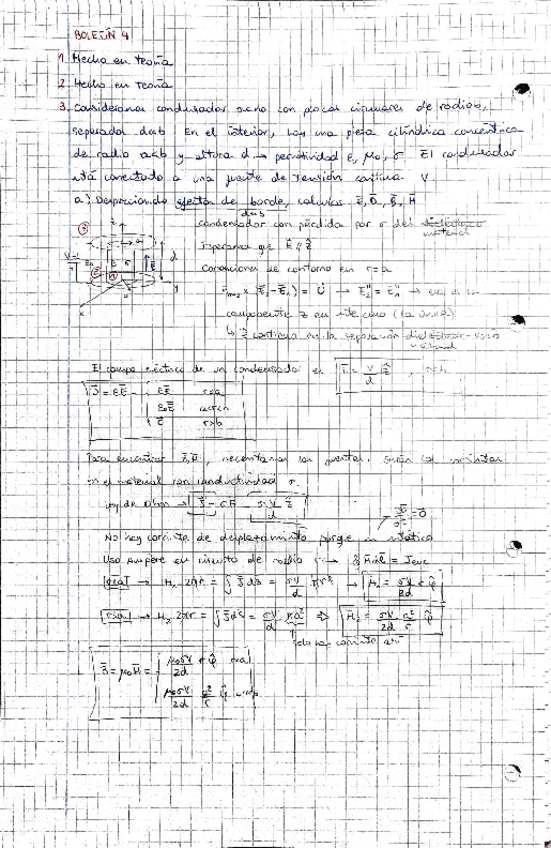 BOLETÍN 4
1. Hecho en teoría
2. Hecho en teoría
3. Consideramos condensador plano con placas circulares de radio b,
separador d<<b En el interior, hay una pieza cilíndrica concéntrica
de radio a<b y altura d → permitividad ε, μ₀, σ. El condensador
está conectado a una fuente de tensión continua V
a) Despreciando efectos de borde, calcular E, D, B, H
d<<b
condensador con pérdida por σ del
Esperamos que E ∥ ẑ
Condiciones de contorno en r=a
componente z en este caso (la única)
↳ E continuo en la separación
El campo eléctrico de un condensador es E = V/d ẑ, r<b
εE r<a
ε₀E a<r<b
r>b
Para encontrar B, H, necesitamos las fuentes. Serán las corrientes
en el material con conductividad σ.
Ley de Ohm → J = σE = σV/d ẑ
No hay corriente de desplazamiento porque es estático
Uso Ampère en circuito de radio r → ∮ H·dl = J enc
r<a → H₁ 2πr = ∫ J dS = σV/d πr² → H₁ = σV/2d r φ̂
r>a → H₂ 2πr = ∫ J dS = σV/d πa² ⇒ H₂ = σV/2d a²/r φ̂
solo hay corriente ahí
B = μ₀H = μ₀σV/2d r φ̂ r<a
μ₀σV/2d a²/r φ̂